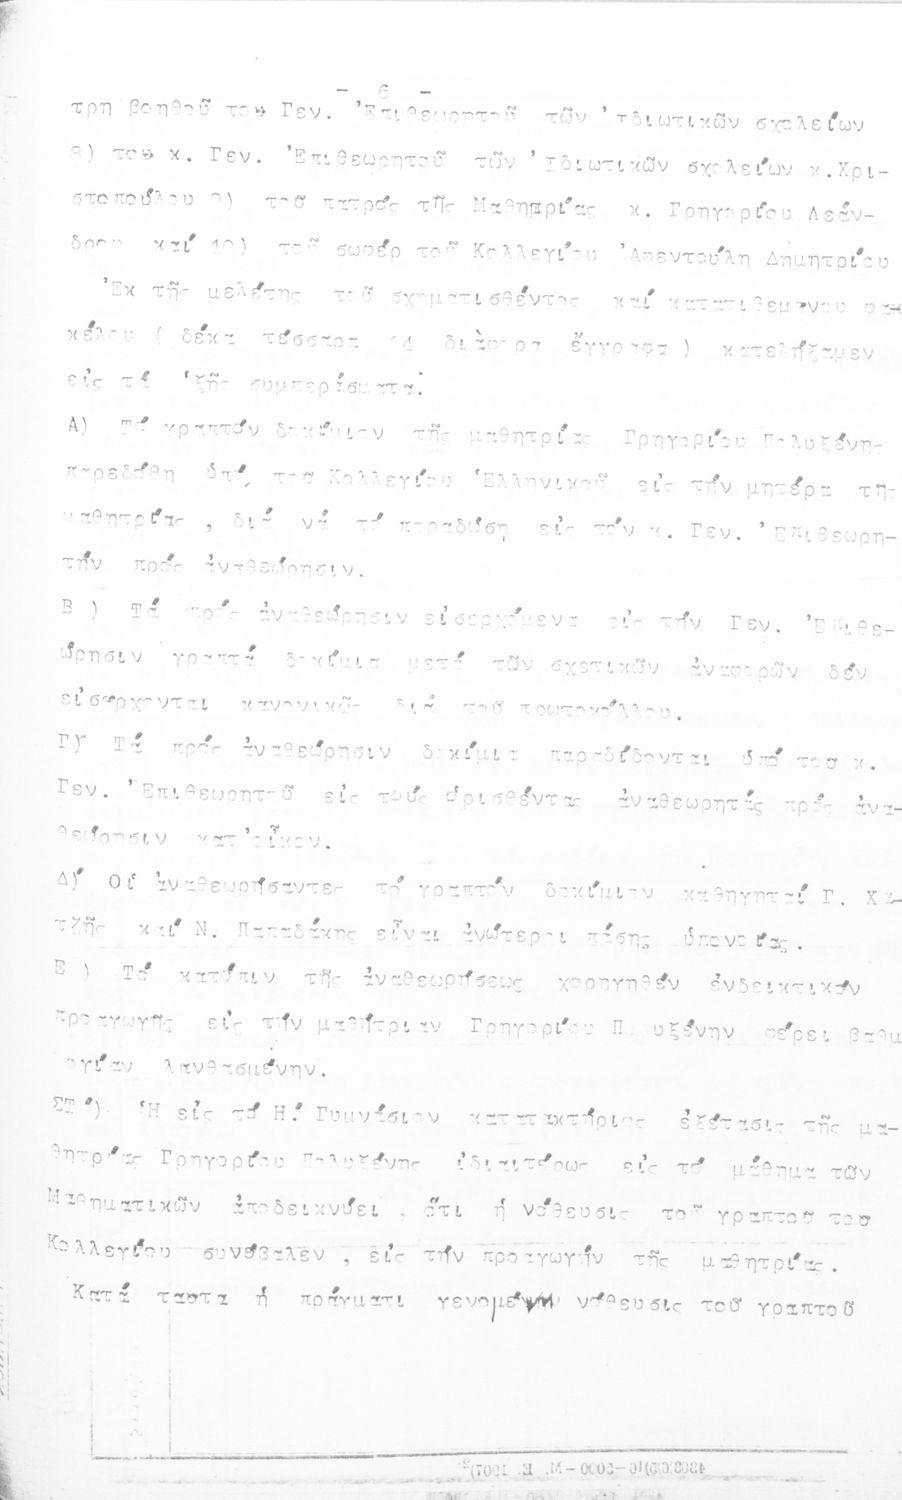 - 6 -
τρη βοηθοῦ του Γεν. Ἐπιθεωρητοῦ τῶν Ἰδιωτικῶν σχολείων
8) του κ. Γεν. Ἐπιθεωρητοῦ τῶν Ἰδιωτικῶν σχολείων κ.Χρι-
στοπούλου 9) τοῦ πατρός τῆς Μαθητρίας κ. Γρηγορίου Λεάν-
δρου καί 10) τοῦ σωφέρ τοῦ Κολλεγίου Ἀφεντούλη Δημητρίου
Ἐκ τῆς μελέτης τοῦ σχηματισθέντος καί κατατιθεμένου φα-
κέλου ( δέκα τέσσαρα 14 διάφορα ἔγγραφα ) κατελήξαμεν
εἰς τά ἑξῆς συμπεράσματα:
Α) Τό γραπτόν δοκίμιον τῆς μαθητρίας Γρηγορίου Πολυξένης
παρεδόθη ὑπό τοῦ Κολλεγίου Ἑλληνικοῦ εἰς τήν μητέρα τῆς
μαθητρίας , διά νά τό παραδώση εἰς τόν κ. Γεν. Ἐπιθεωρη-
τήν πρός ἀναθεώρησιν.
Β ) Τά πρός ἀναθεώρησιν εἰσερχόμενα εἰς τήν Γεν. Ἐπιθε-
ώρησιν γραπτά δοκίμια μετά τῶν σχετικῶν ἀναφορῶν δέν
εἰσέρχονται κανονικῶς διά τοῦ πρωτοκόλλου.
Γ) Τά πρός ἀναθεώρησιν δοκίμια παραδίδονται ὑπό του κ.
Γεν. Ἐπιθεωρητοῦ εἰς τούς ὁρισθέντας ἀναθεωρητάς πρός ἀνα-
θεώρησιν κατ'οἶκον.
Δ) Οἱ ἀναθεωρήσαντες τό γραπτόν δοκίμιον καθηγηταί Γ. Χα-
τζῆς καί Ν. Παπαδάκης εἶναι ἀνώτεροι πάσης ὑπονοίας.
Ε ) Τό κατόπιν τῆς ἀναθεωρήσεως χορηγηθέν ἐνδεικτικόν
προαγωγῆς εἰς τήν μαθήτριαν Γρηγορίου Πολυξένην φέρει βαθμ
ογίαν λανθασμένην.
ΣΤ ) Ἡ εἰς τό Η! Γυμνάσιον κατατακτήριος ἐξέτασις τῆς μα-
θητρίας Γρηγορίου Πολυξένης ἰδιαιτέρως εἰς τό μάθημα τῶν
Μαθηματικῶν ἀποδεικνύει , ὅτι ἡ νόθευσις τοῦ γραπτοῦ του
Κολλεγίου συνέβαλεν , εἰς τήν προαγωγήν τῆς μαθητρίας.
Κατά ταυτα ἡ πράγματι γενομένη νόθευσις τοῦ γραπτοῦ